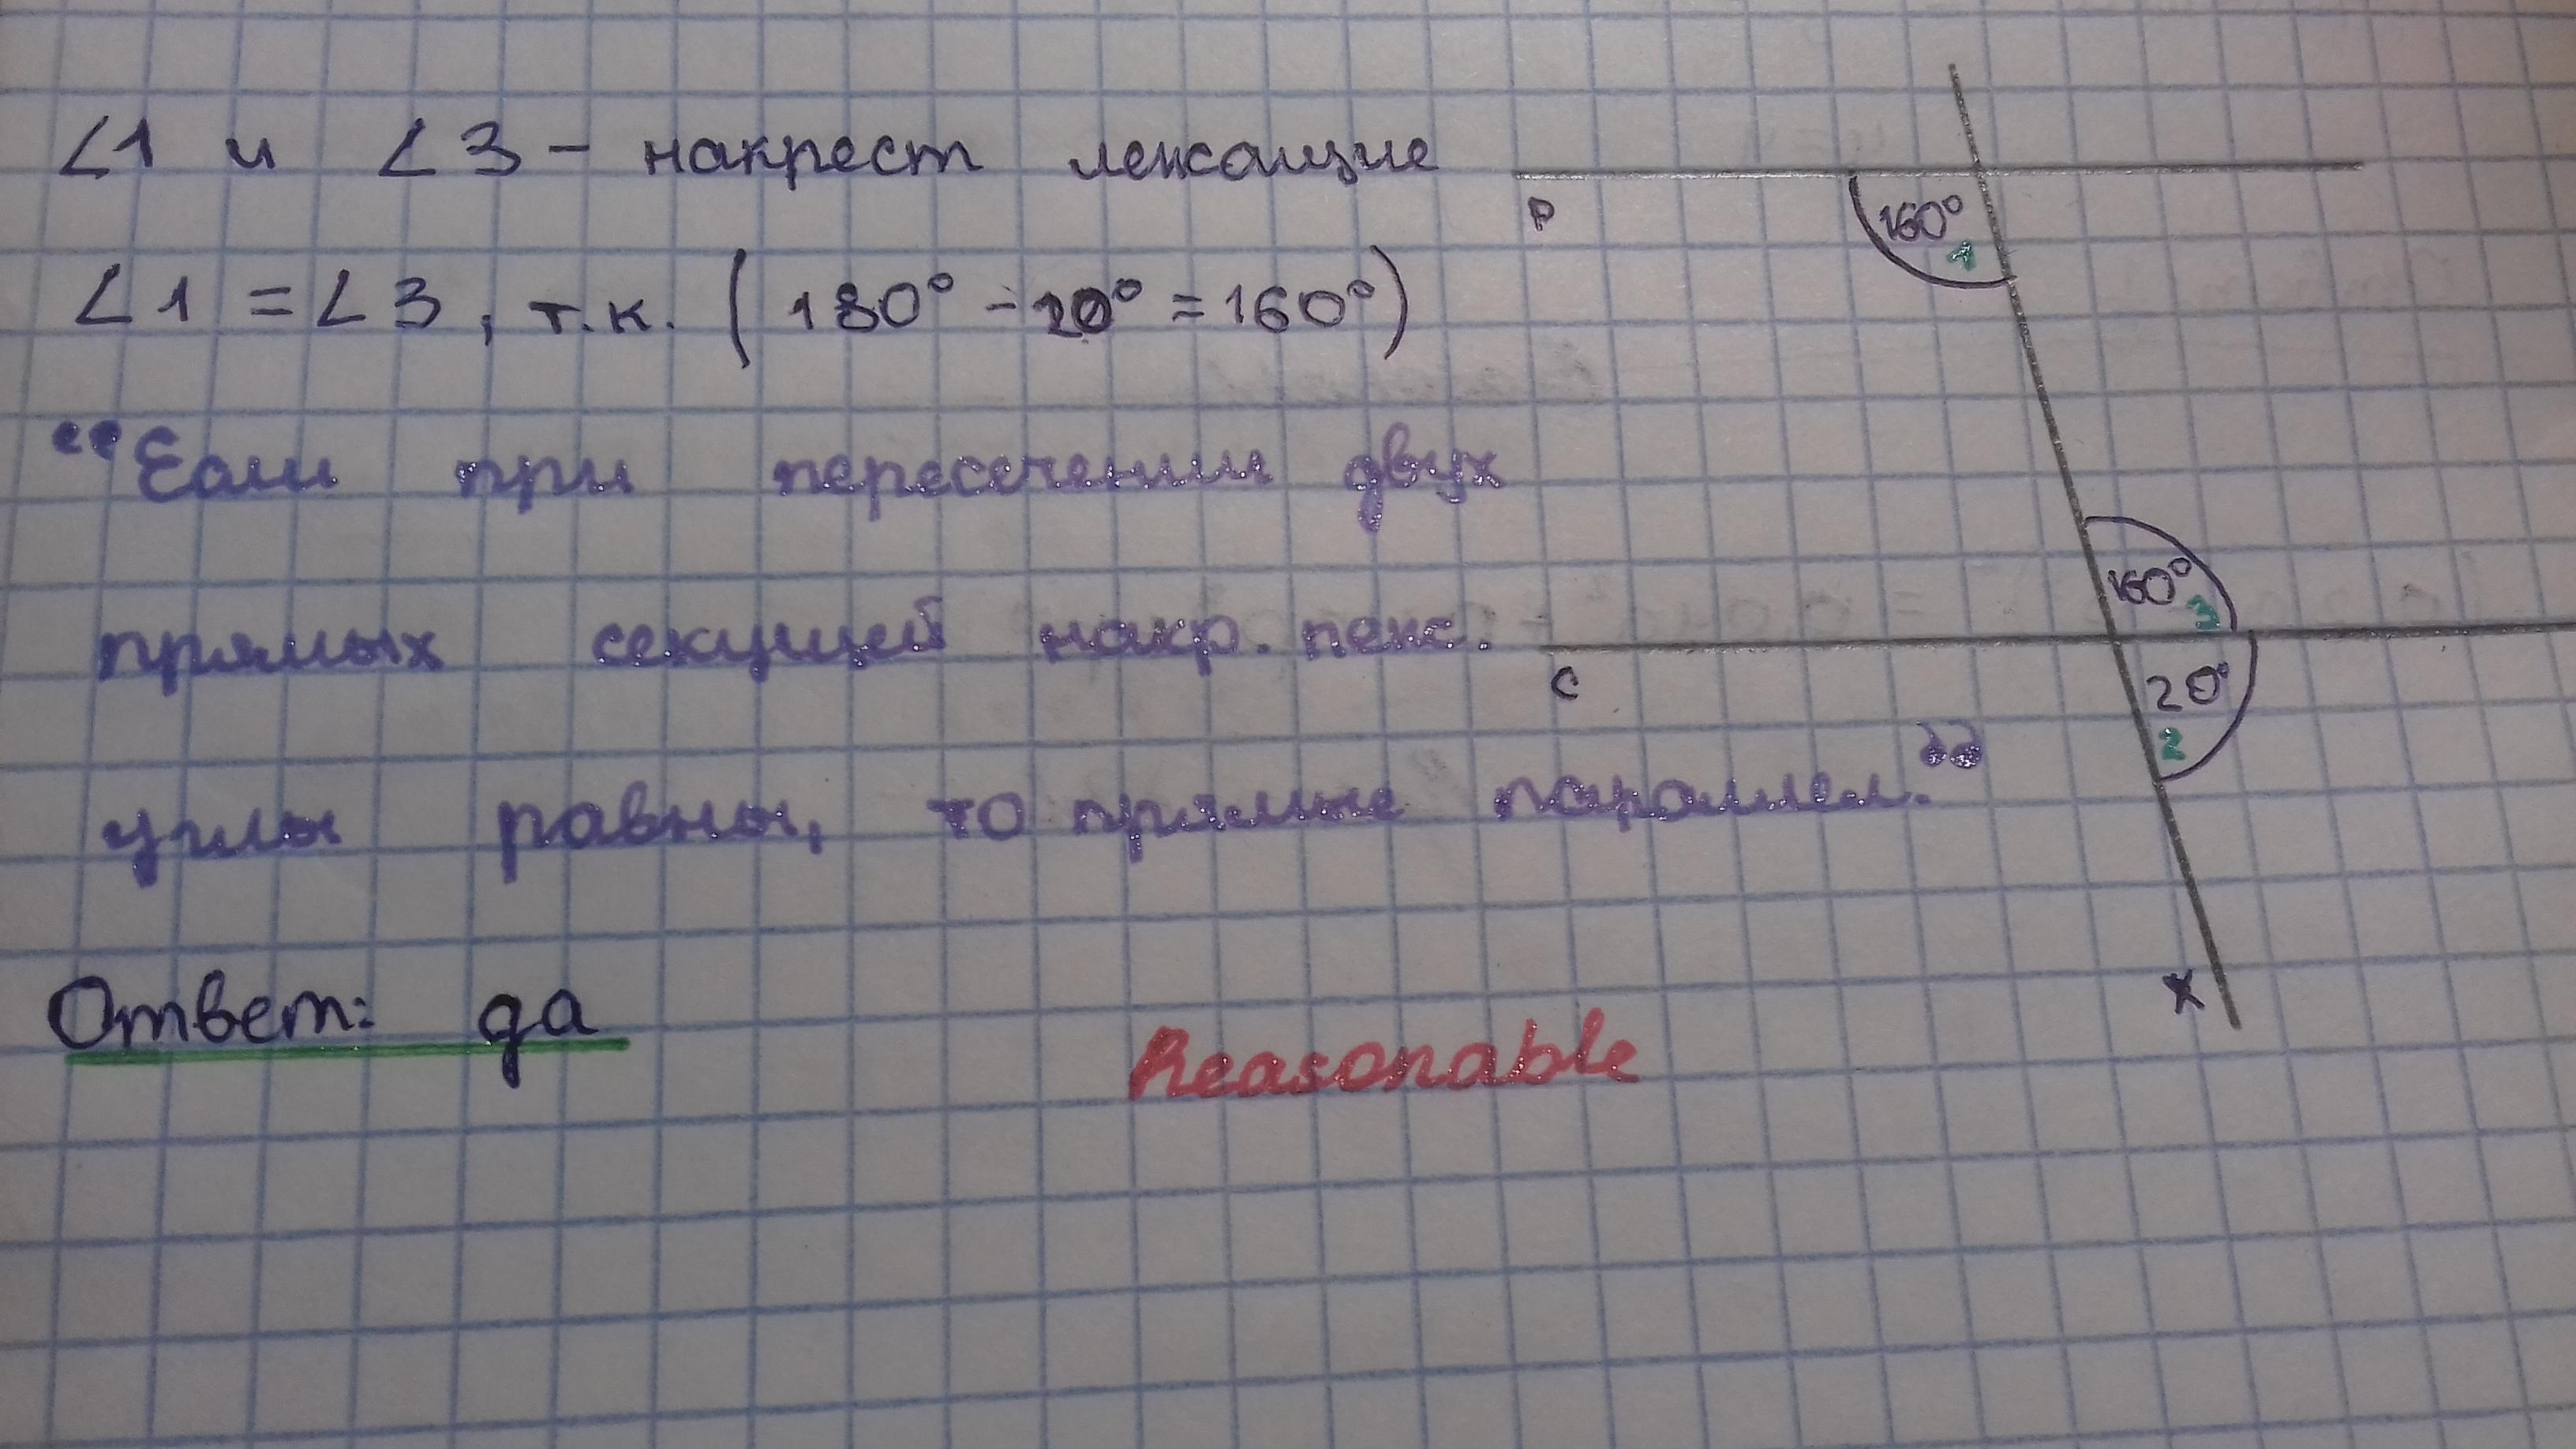 ∠1 и ∠3 – накрест лежащие
∠1 = ∠3, т.к. (180° - 20° = 160°)
“Если при пересечении двух
прямых секущей накр. леж.
углы равны, то прямые параллел.”
Ответ: да
Reasonable
P
160°
1
160°
3
C
20°
2
X